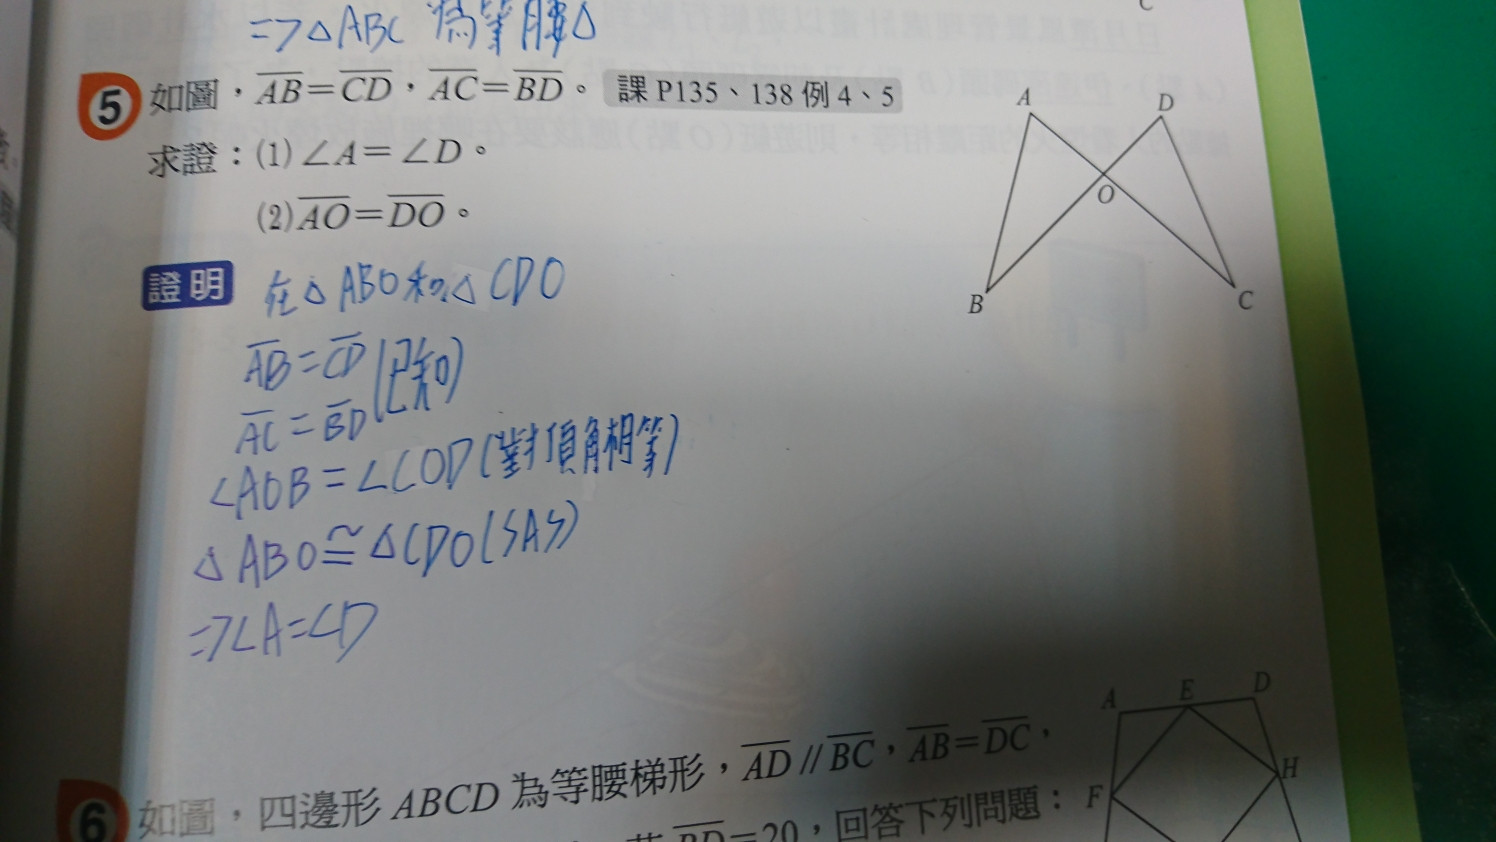 => △ABC 為等腰△
C
5 如圖，AB=CD，AC=BD。 課 P135、138 例 4、5
求證：(1)∠A=∠D。
(2)AO=DO。
A D
O
B C
證明 在△ABO和△CDO
AB=CD(已知)
AC=BD
∠AOB=∠COD(對頂角相等)
△ABO≅△CDO(SAS)
=>∠A=∠D
6 如圖，四邊形 ABCD 為等腰梯形，AD // BC，AB=DC，
BD=20，回答下列問題：
A E D
F H